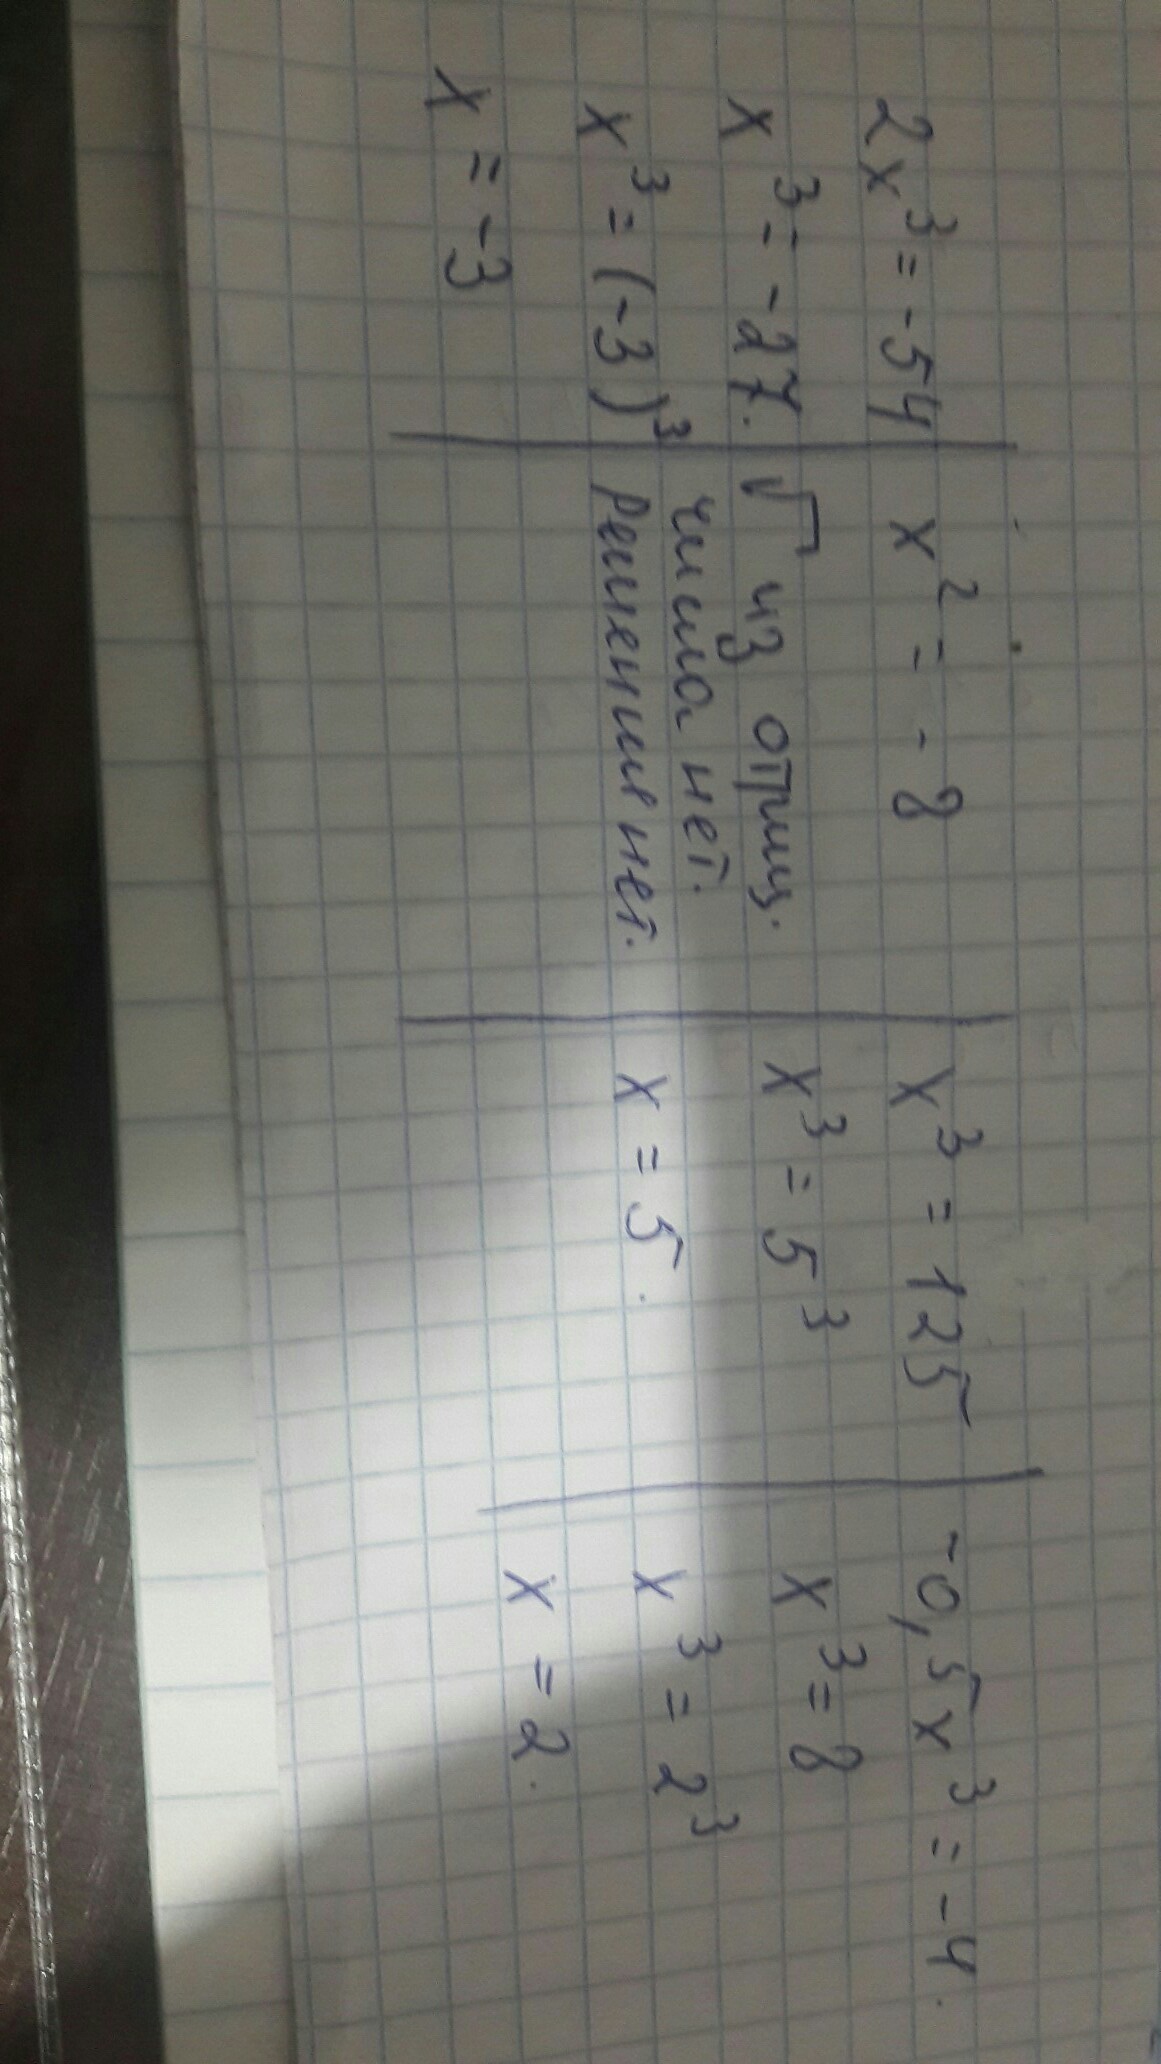 2x³ = -54
x³ = -27.
x³ = (-3)³
x = -3
x² = -8
√ из отриц.
числа нет.
Решения нет.
x³ = 125
x³ = 5³
x = 5.
-0,5x³ = -4.
x³ = 8
x³ = 2³
x = 2.